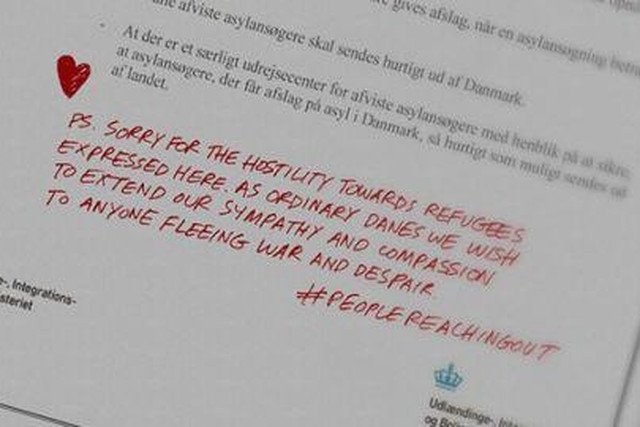 afviste asylansøgere skal sendes hurtigt ud af Danmark.
gives afslag, når en asylansøgning
- At der er et særligt udrejsecenter for afviste asylansøgere med henblik på at sikre,
at asylansøgere, der får afslag på asyl i Danmark, så hurtigt som muligt sendes ud
af landet.
PS. SORRY FOR THE HOSTILITY TOWARDS REFUGEES
EXPRESSED HERE. AS ORDINARY DANES WE WISH
TO EXTEND OUR SYMPATHY AND COMPASSION
TO ANYONE FLEEING WAR AND DESPAIR.
#PEOPLEREACHINGOUT
e-, Integrations-
steriet
Udlændinge-,
og